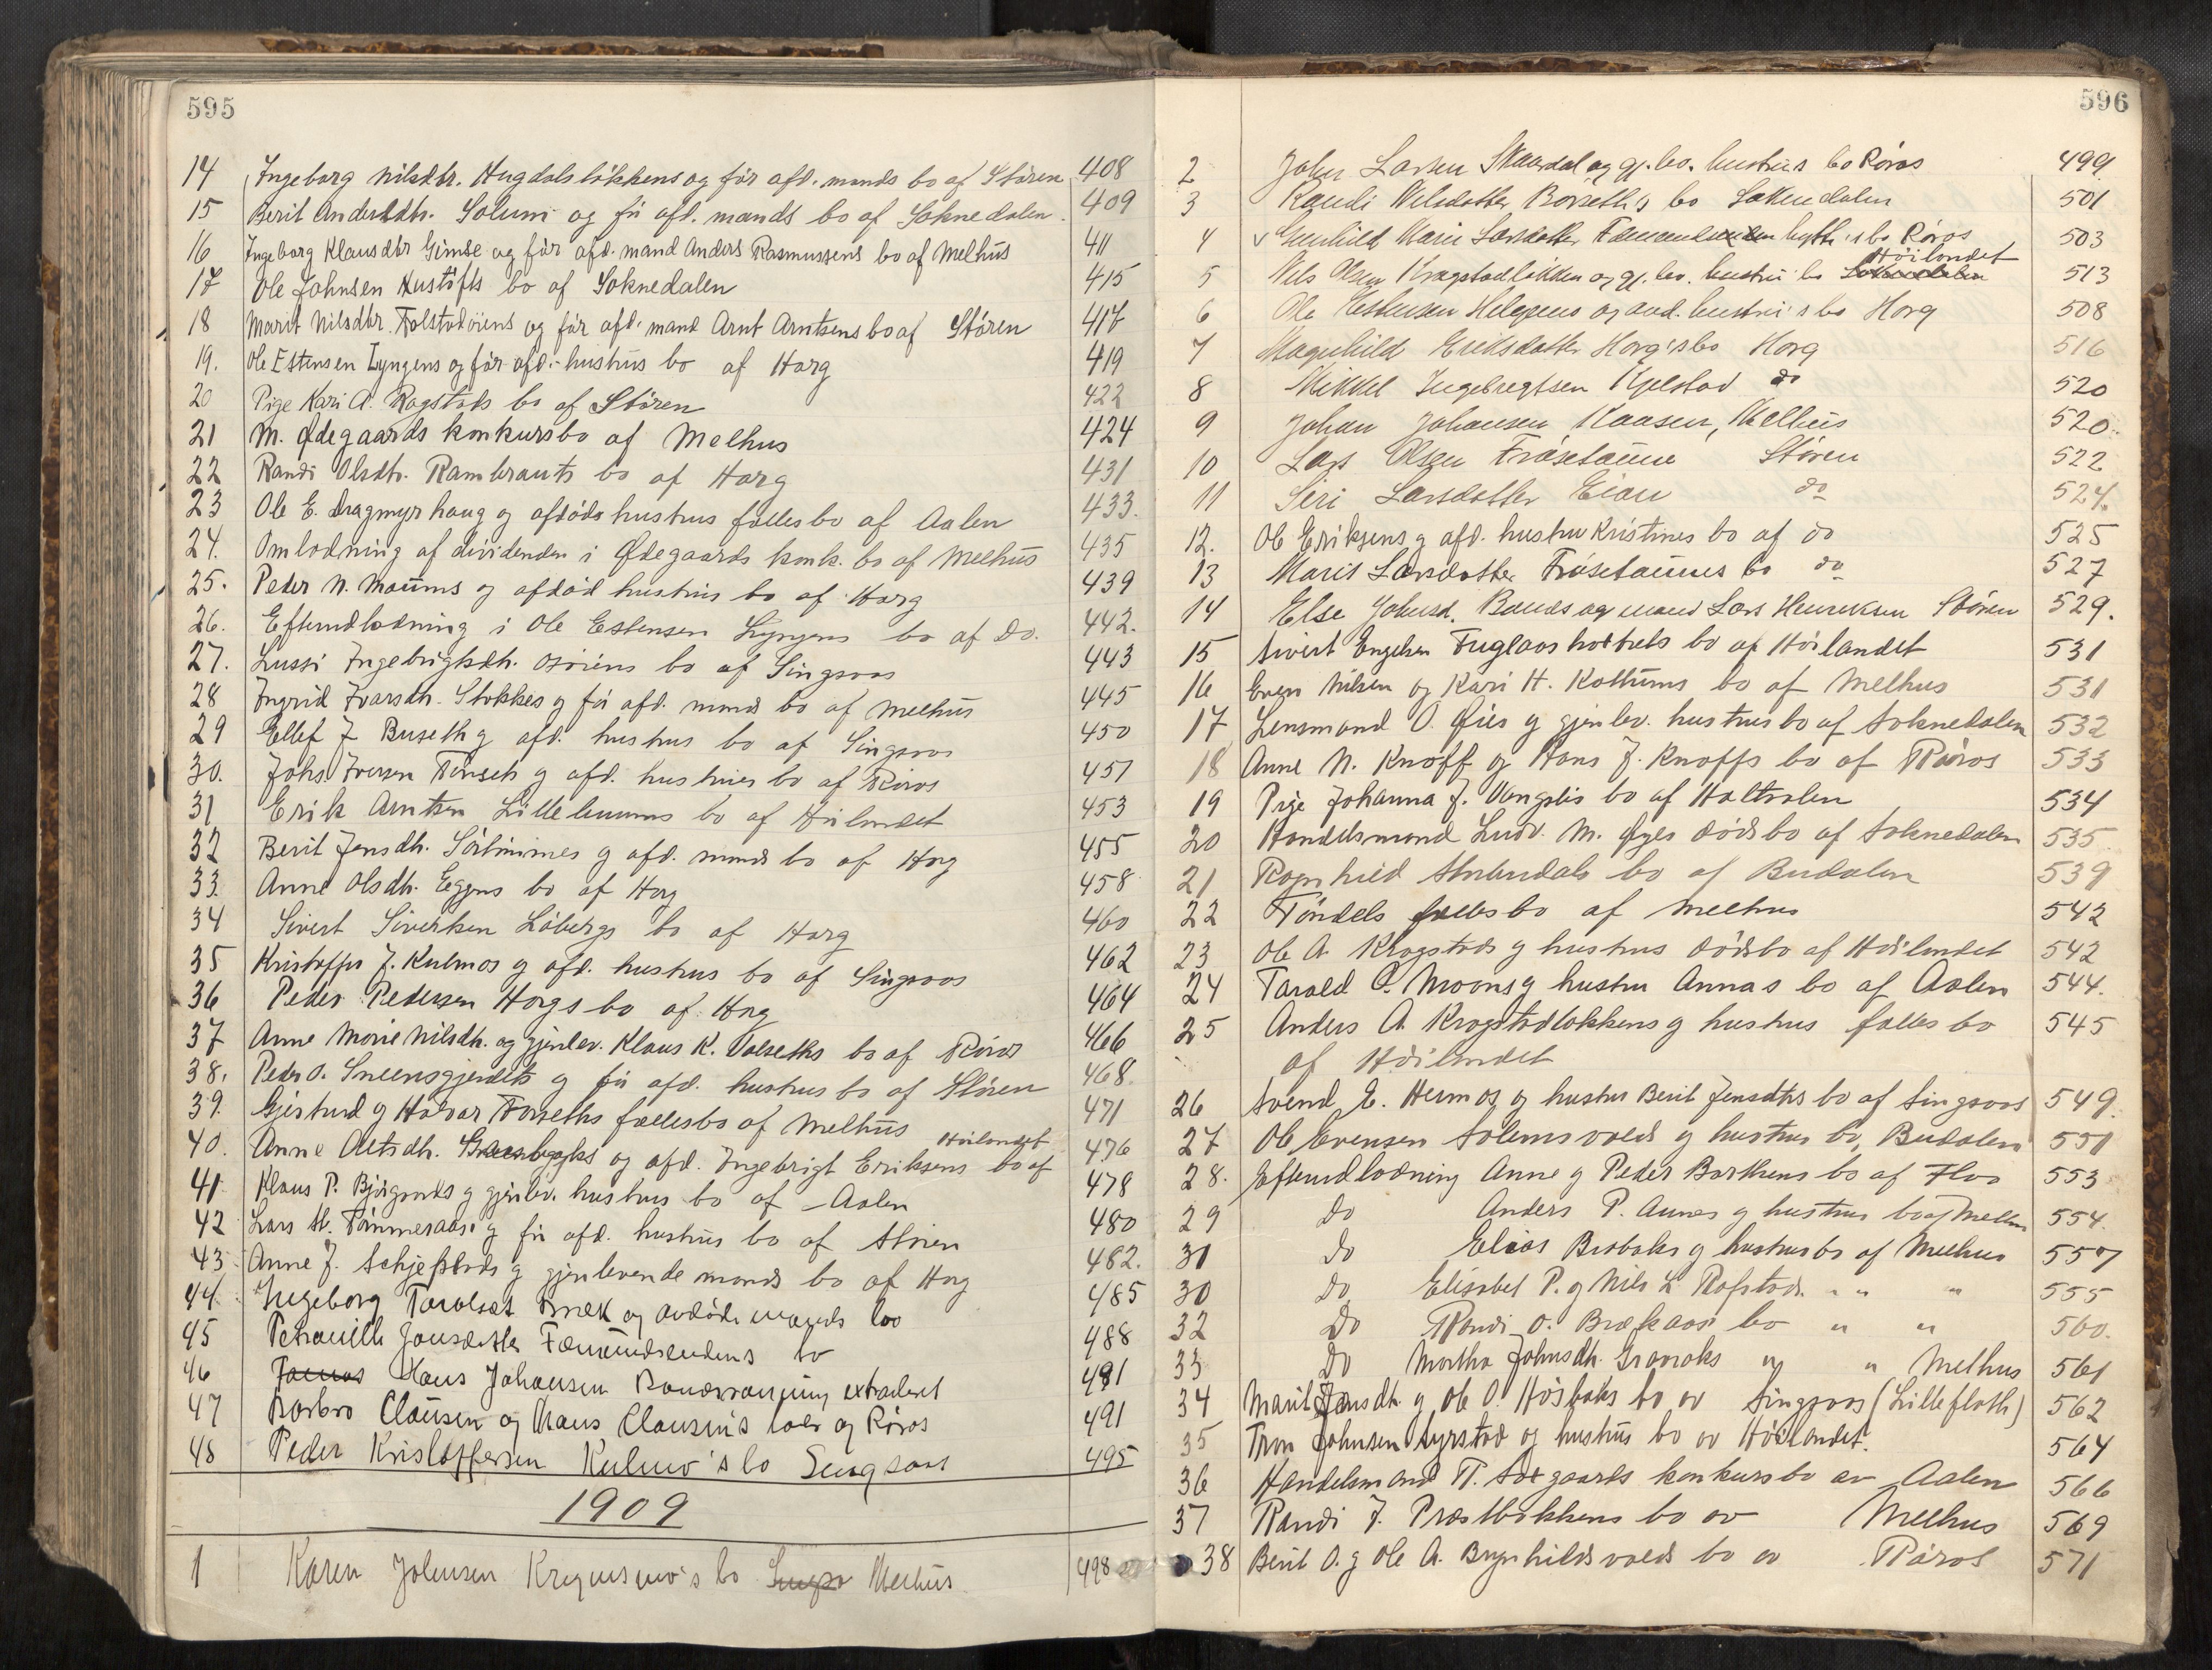 595
14 Ingeborg Nilsdtr. Hugdalsløkkens og før afd. mands bo af Støren 408
15 Berit Andersdtr. Solum og før afd. mands bo af Soknedalen 409
16 Ingeborg Klausdtr Gimse og før afd. mand Anders Rasmussens bo af Melhus 411
17 Ole Johnsen Hustøfts bo af Soknedalen 415
18 Marit Nilsdtr. Folstadøiens og før afd. mand Arnt Arntsens bo af Støren 417
19. Ole Estensen Lyngens og før afd. hustrus bo af Horg 419
20 Pige Kari A. Rogstads bo af Støren 422
21 M. Ødegaards konkursbo af Melhus 424
22 Randi Olsdtr. Rambrauts bo af Horg 431
23 Ole E. Dragmyrhaug og afdøde hustrus fællesbo af Aalen 433.
24. Omlodning af dividenden i Ødegaards konk. bo af Melhus 435
25. Peder N. Moums og afdød hustrus bo af Horg 439
26. Efterudlodning i Ole Estensen Lyngens bo af Do. 442.
27. Lussi Ingebrigtsdtr. Osøiens bo af Singsaas 443
28 Ingrid Ivarsdtr. Stokkes og før afd. mands bo af Melhus 445
29 Ellef J Buseth og afd. hustrus bo af Singsaas 450
30. Johs. Iversen Tønseth og afd. hustrues bo af Røros 451
31 Erik Arntsen Lillelunums bo af Høilandet 453
32 Berit Jensdtr. Sørtømmes og afd. mands bo af Horg 455
33. Anne Olsdtr. Eggens bo af Horg 458
34 Sivert Sivertsen Løbergs bo af Horg 460
35 Kristoffer J. Kulmos og afd. hustrus bo af Singsaas 462
36 Peder Pedersen Horgs bo af Horg 464
37 Anne Marie Nilsdtr. og gjenlev. Klaus K. Dalseths bo af Røros 466
38. Peder O. Sneensgjerdets og før afd. hustrus bo af Støren 468.
39. Gjertrud og Halvar Forseths fællesbo af Melhus 471
Høilandet
40. Anne Oletsdtr. og afd. Ingebrigt Eriksens bo af 476
41 Klaus P. Bjørgaards og gjenlev. hustrus bo af Aalen 478
42 Lars H. Tømmeraas og før afd. hustrus bo af Støren 480
43 Anne J. Schjefstads og gjenlevende mands bo af Horg 482.
44 Ingeborg og avdøde mands bo 485
45 Petronille Jonsdatter Fæmundsendens bo 488
46 Hans Johansen extraderet 491
47 Barbro Clausen og Klaus Clausens bo og Røros 491
48 Peder Kristoffersen Kulmo's bo Singsaas 495
1909
1 Karen Johnsen bo Melhus 498
596
2 John Larsen Skaardal og gj. lev. hustrus bo Røros 499
3 Randi Nilsdatter Borseth's bo Soknedalen 501
4 Gunhild Marie Larsdatter bo Røros 503
Høilandet
5 Nils Olsen Kragstadløkken og gj. lev. hustru's bo Soknedalen 513
6 Ole Estensen og avd. hustru's bo Horg 508
7 Magnhild Eriksdatter Horg's bo Horg 516
8 Mikkel Ingebregtsen Kjelstad do 520
9 Johan Johansen Kaasen, Melhus 520
10 Lars Olsen Frøsetøiene Støren 522
11 Siri Larsdatter Eian do 524.
12. Ole Eriksens og afd. hustru Kristines bo af do 525
13 Marit Larsdatter Frøsetøiens bo do 527
14 Else Johnsd. Bones og mand Lars Henriksen Støren 529.
15 Sivert Engelsen Fuglaasholtets bo af Høilandet 531
16 Even Nilsen og Kari H. Kottums bo af Melhus 531
17 Lensmand O. Øies og gjenlev. hustrus bo af Soknedalen 532
18 Anne N. Knoff og Hans J. Knoffs bo af Røros 533
19 Pige Johanna J. Vongslis bo af Holtaalen 534
20 Handelsmand Ludv. M. Øyes dødsbo af Soknedalen 535
21 Ragnhild Storlundals bo af Budalen 539
22 Tøndels fællesbo af Melhus 542
23 Ole A. Krogstads og hustrus dødsbo af Høilandet 542
24 Tarald O. Moens og hustru Annas bo af Aalen 544.
25 Anders A. Krogstadløkkens og hustrus fællesbo 545
af Høilandet
26 Svend E. Hermos og hustru Berit Jensdtrs bo af Singsaas 549.
27 Ole Evensen Solemsvolds og hustrus bo, Budalen 551
28. Efterudlodning Anne og Peder Borthens bo af Flaa 553
29 Do Anders P. Aunes og hustrus bo af Melhus 554.
31 Do Elias Brobaks og hustrus bo af Melhus 557
30 Do Elisabet P. og Nils L. Rofstads " " " 555
32 Do Randi O. Brækaas bo " " 560.
33 Do Martha Johnsdtr. Graaraks " " Melhus 561
34 Marit Jensdtr. og Ole O. Høsbaks bo av Singsaas (Lillefloth) 562
35 Tron Johnsen Syrstad og hustrus bo av Høilandet. 564
36 Handelsmand T. Sægaards konkursbo av Aalen 566
37 Randi J. Præstbakkens bo av Melhus 569
38 Berit O. og Ole A. Brynhildsvolds bo av Røros 571